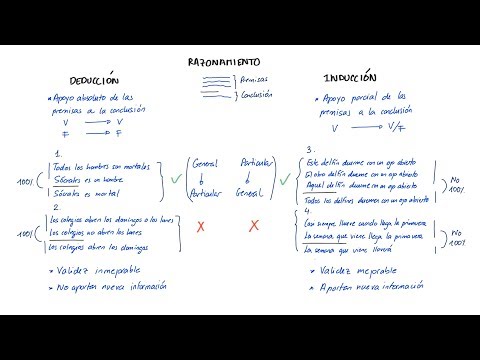 RAZONAMIENTO
Premisas
Conclusión
DEDUCCIÓN
* Apoyo absoluto de las
premisas a la conclusión
V → V
F → F
1.
Todos los hombres son mortales
Sócrates es un hombre
Sócrates es mortal
100%
2.
Los colegios abren los domingos o los lunes
Los colegios no abren los lunes
Los colegios abren los domingos
100%
* Validez inmejorable
* No aportan nueva información
✓
General
↓
Particular
Particular
↓
General
✓
X
X
INDUCCIÓN
* Apoyo parcial de las
premisas a la conclusión
V → V/F
3.
Este delfín duerme con un ojo abierto
El otro delfín duerme con un ojo abierto
Aquel delfín duerme con un ojo abierto
Todos los delfines duermen con un ojo abierto
No
100%
4.
Casi siempre llueve cuando llega la primavera
La semana que viene llega la primavera
La semana que viene lloverá
No
100%
* Validez mejorable
* Aportan nueva información